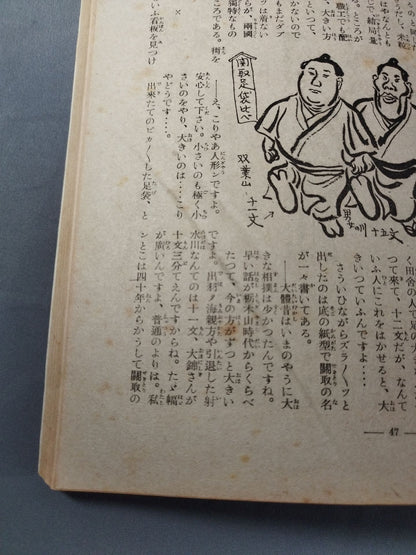 うだし、米粒
はやなんとも
じで、結局量
る。ところが
職工でも配
大きい方
といつて、
もまだダブ
ツは着ない
らが、兩國
獨特なもの
ころである。街を
×
いゝ看板を見つけ
関取足袋比べ
双葉山
十一文
男女ノ川 十五文
――え、こりやあ人形ですよ。
安心して下さい。小さいのも極く小
さいのをやり、大きいのは‥‥こり
やどうです‥‥。
出來たてのピカ〳〵した足袋、と
く田舍の
つて來て、十二文だが、なんて
いふ人にこれをはかせると、大
きいつていふんですよ‥‥
さういひながらズラ〳〵ツと
出したのは底の紙型で關取の名
が一々書いてある。
――大體昔はいまのやうに大
きな相撲は少かつたんですね。
早い話が栃木山時代からくらべ
たつて、今の方がずつと大きい
ですよ。出羽ノ海親方や引退した射
水川なんてのは十一文、大錦さんが
十文三分てえんですからね。たゞ幅
が廣いんですよ、普通のよりは。私
ンとこは四十年からかうして關取の
― 47 ―